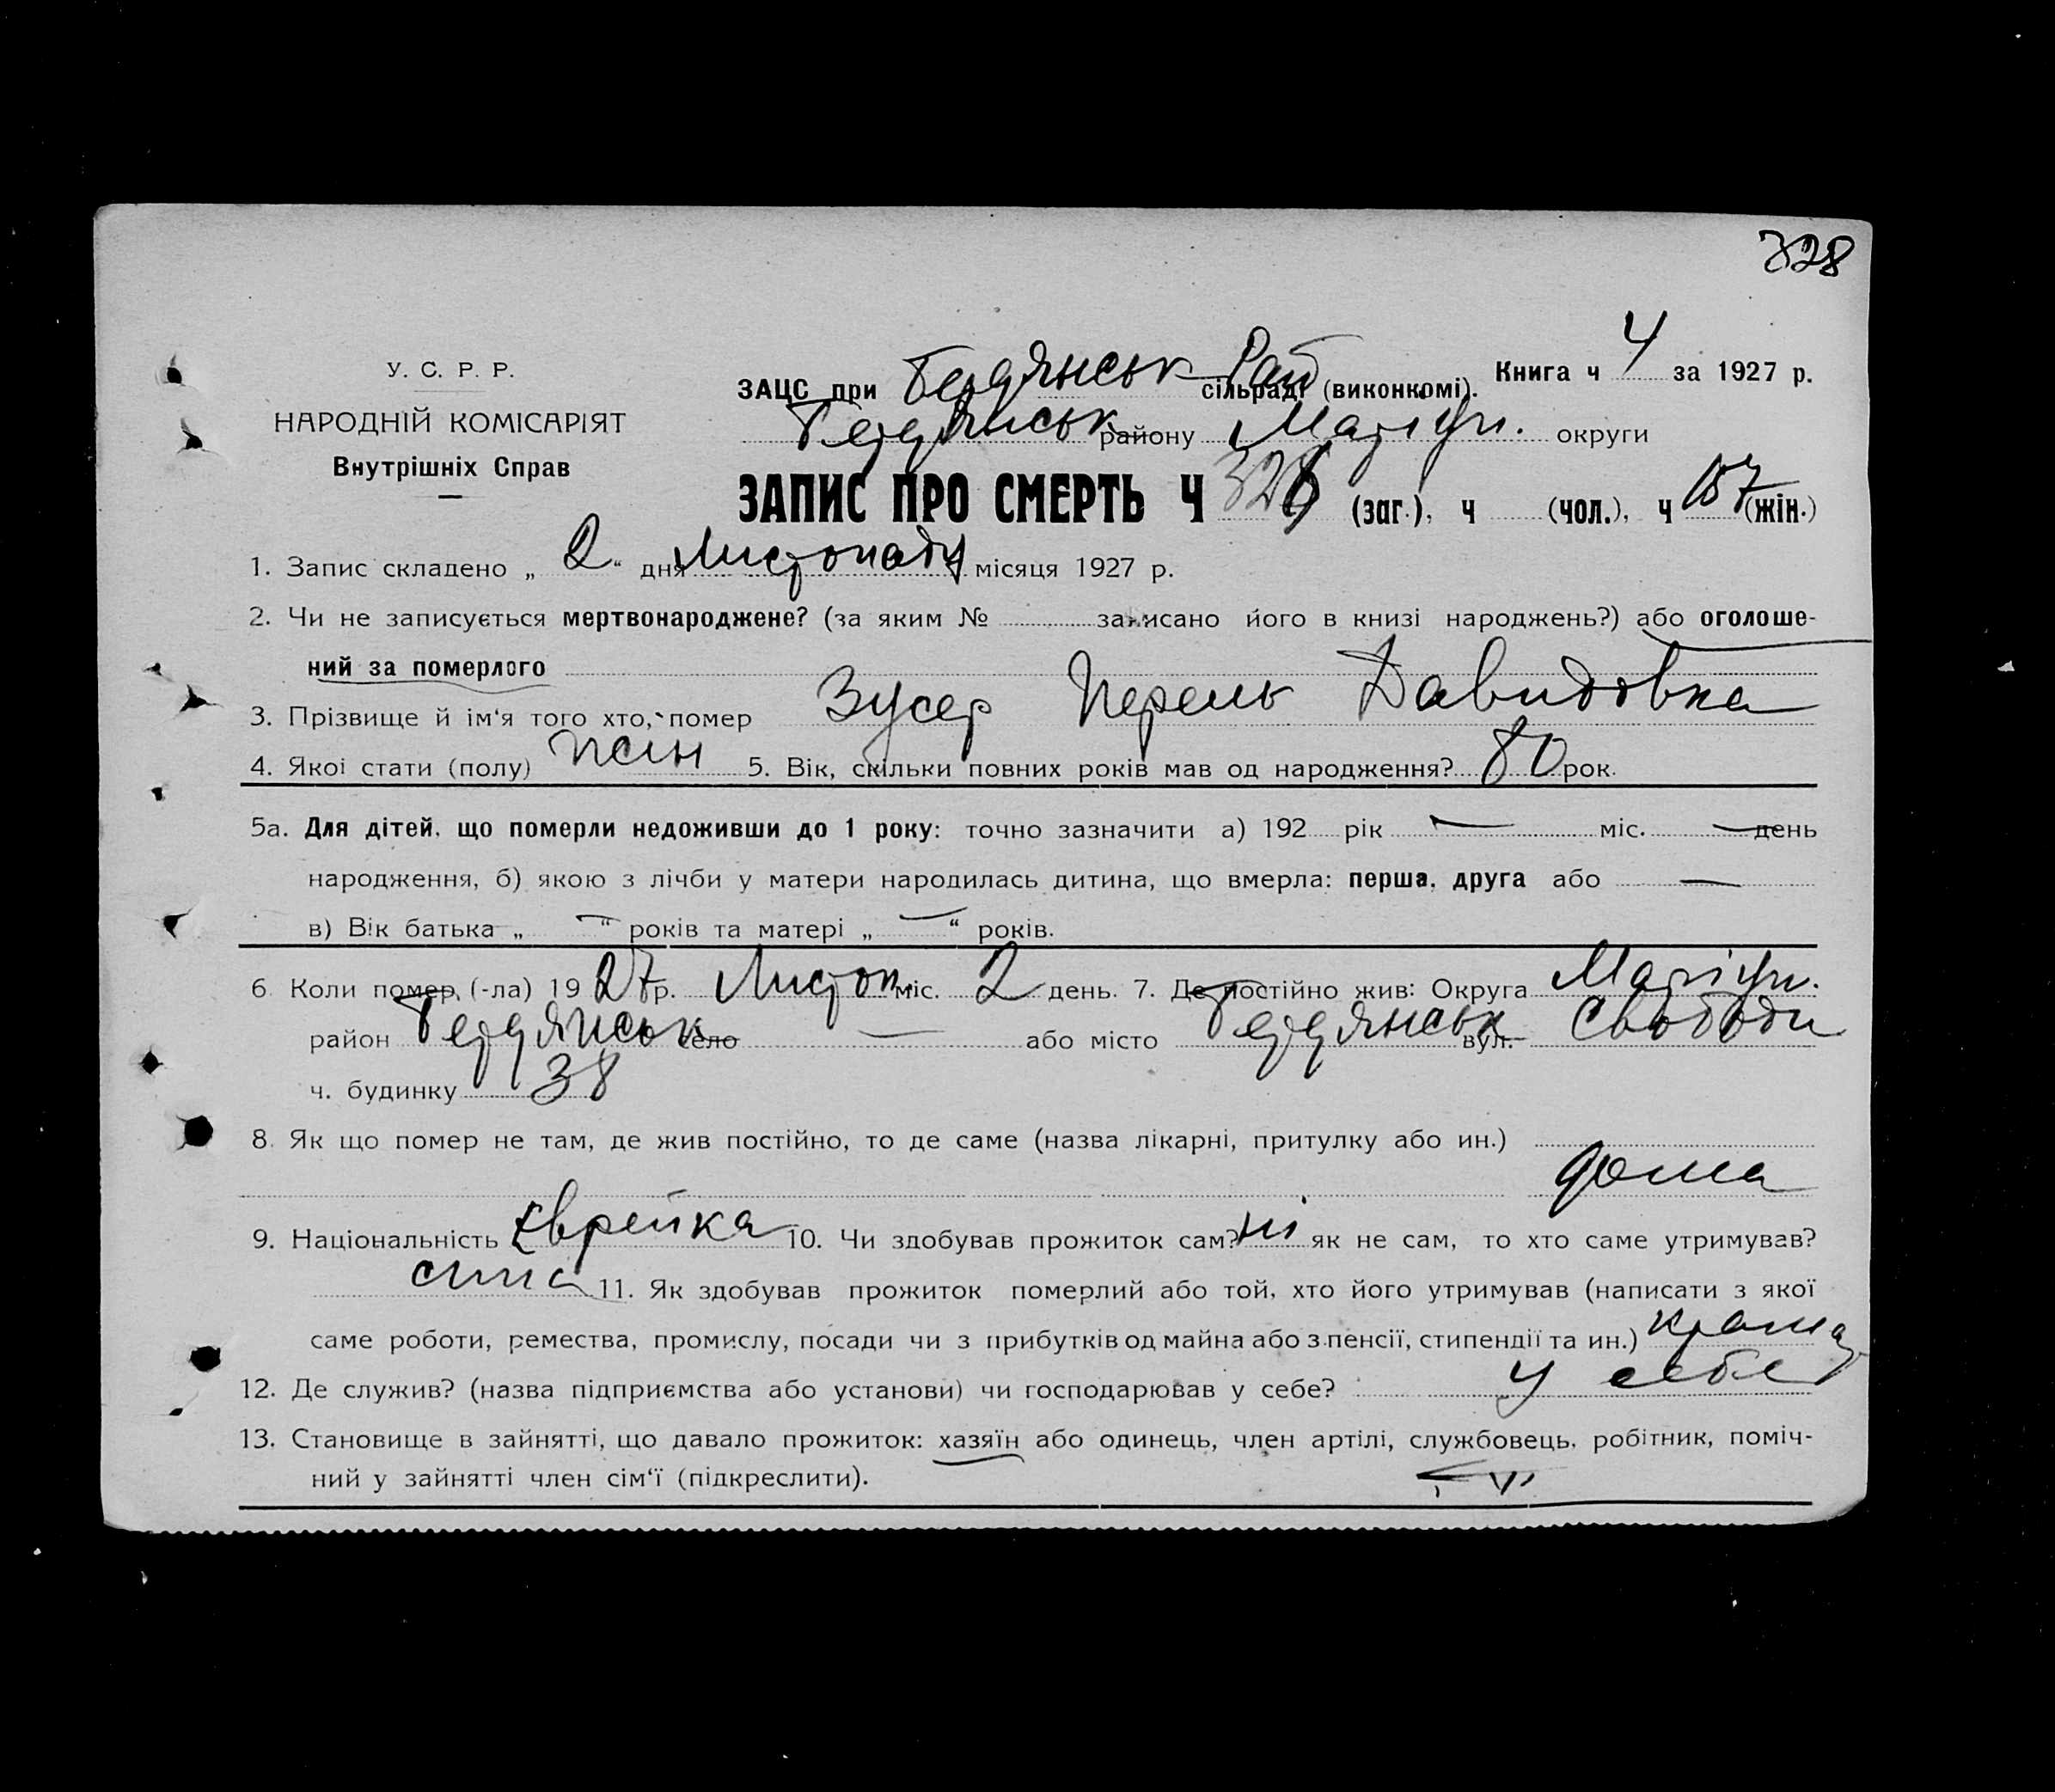 328
У. С. Р. Р.
НАРОДНІЙ КОМІСАРІЯТ
Внутрішніх Справ
ЗАЦС при Бердянськ Рай сільраді (виконкомі). Книга ч 4 за 1927 р.
Бердянськ району Маріуп. округи
ЗАПИС ПРО СМЕРТЬ Ч 328 (заг.), ч (чол.), ч 157 (жін.)
1. Запис складено „ 2 “ дня Листопаду місяця 1927 р.
2. Чи не записується мертвонароджене? (за яким № записано його в книзі народжень?) або оголоше-
ний за померлого
3. Прізвище й ім‘я того хто, помер Зусер Перель Давидовна
4. Якоі стати (полу) жін 5. Вік, скільки повних років мав од народження? 80 рок.
5а. Для дітей, що померли недоживши до 1 року: точно зазначити а) 192 рік — міс. — день
народження, б) якою з лічби у матери народилась дитина, що вмерла: перша, друга або —
в) Вік батька „ — “ років та матері „ — “ років.
6. Коли помер, (-ла) 1927 р. Листоп. міс. 2 день. 7. Де постійно жив: Округа Маріуп.
район Бердянськ село — або місто Бердянськ вул. Свободи
ч. будинку 38
8. Як що помер не там, де жив постійно, то де саме (назва лікарні, притулку або ин.)
дома
9. Національність Єврейка 10. Чи здобував прожиток сам? ні як не сам, то хто саме утримував?
сина 11. Як здобував прожиток померлий або той, хто його утримував (написати з якої
саме роботи, ремества, промислу, посади чи з прибутків од майна або з пенсії, стипендії та ин.) крама
12. Де служив? (назва підприємства або установи) чи господарював у себе? у себе
13. Становище в зайнятті, що давало прожиток: хазяїн або одинець, член артілі, службовець, робітник, поміч-
ний у зайнятті член сім‘ї (підкреслити).